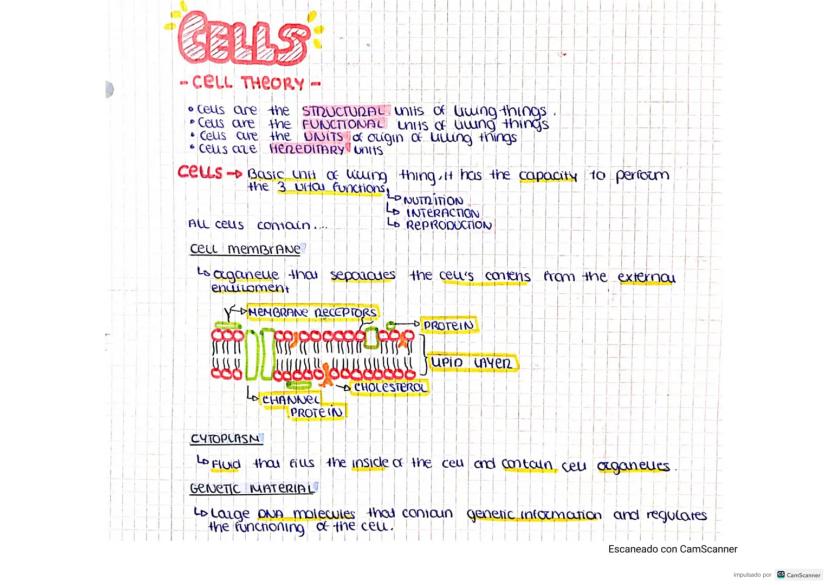 CELLS
- CELL THEORY -
• Cells are the STRUCTURAL units of living things.
• Cells are the FUNCTIONAL units of living things
• Cells are the UNITS of origin of living things
• Cells are HEREDITARY units
CELLS → Basic unit of living thing, it has the capacity to perform
the 3 vital functions
↳ NUTRITION
↳ INTERACTION
↳ REPRODUCTION
All cells contain....
CELL MEMBRANE
↳ organelle that separates the cell's contens from the external
enviroment
MEMBRANE RECEPTORS
PROTEIN
LIPID LAYER
CHOLESTEROL
CHANNEL
PROTEIN
CYTOPLASM
↳ Fluid that fills the inside of the cell and contain cell organelles.
GENETIC MATERIAL
↳ Large DNA molecules that contain genetic information and regulates
the functioning of the cell.
Escaneado con CamScanner
Impulsado por CS CamScanner